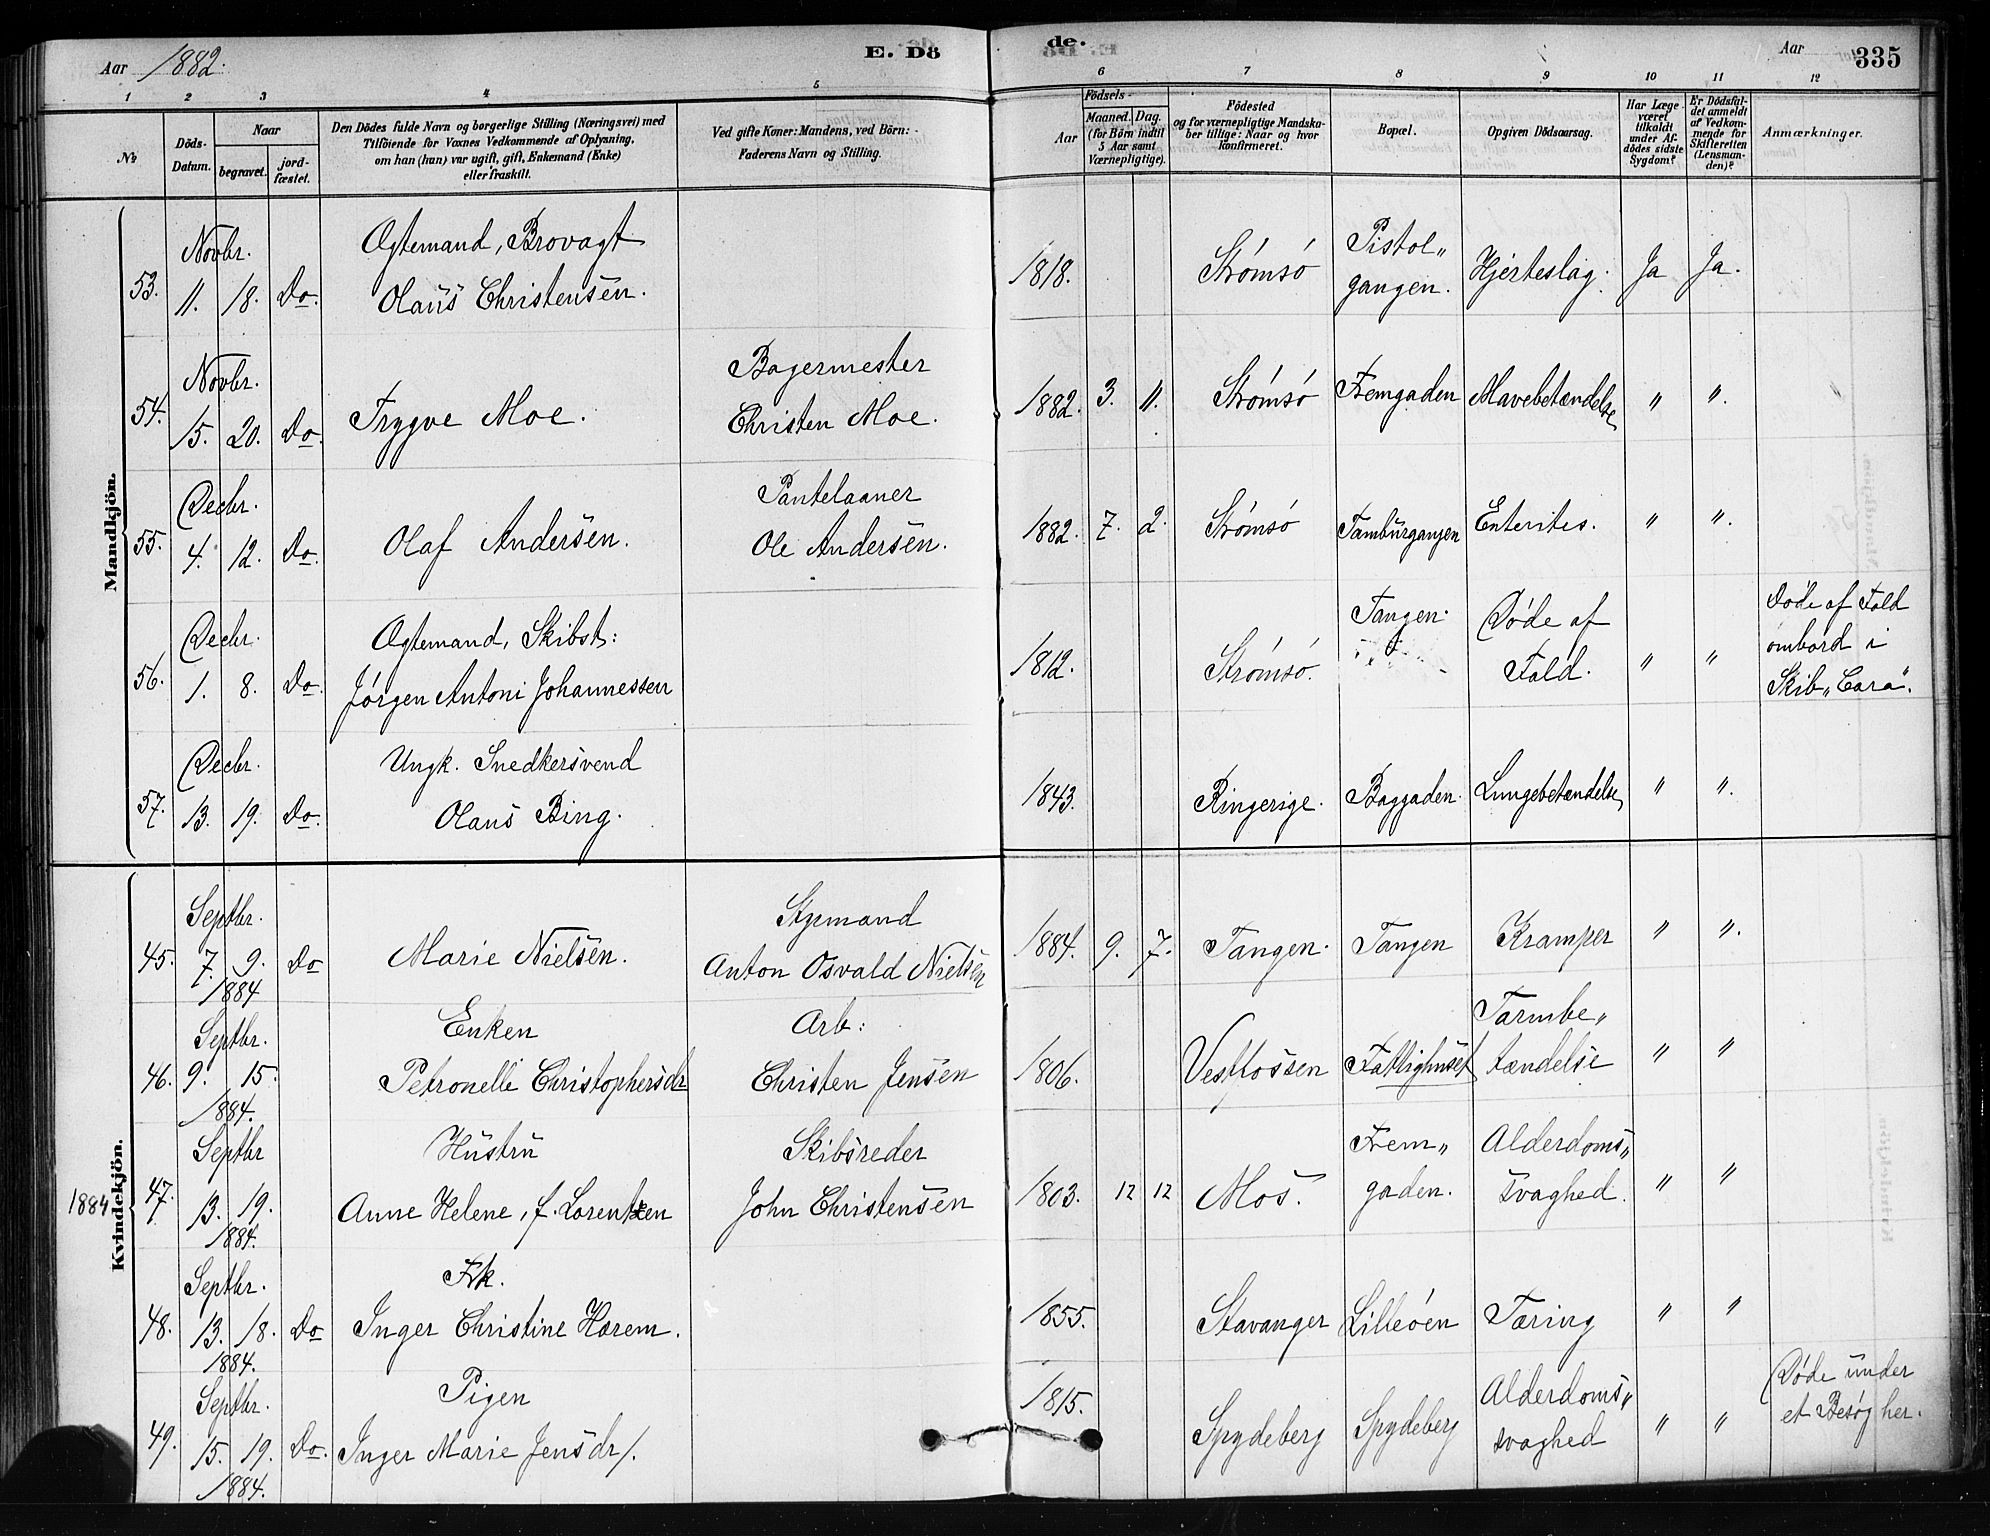 Aar 1882.
E. Dö
de.
Aar
335
1 2 3 4 5
6 7 8 9 10 11 12
No
Döds-
Datum.
Naar
begravet.
jord-
fæstet.
Den Dödes fulde Navn og borgerlige Stilling (Næringsvei) med
Tilföiende for Voxnes Vedkommende af Oplysning,
om han (hun) var ugift, gift, Enkemand (Enke)
eller fraskilt.
Ved gifte Koner: Mandens, ved Börn:
Faderens Navn og Stilling.
Födsels-
Aar
Maaned.
Dag.
(for Börn indtil
5 Aar samt
Værnepligtige).
Födested
og for værnepligtige Mandska-
ber tillige: Naar og hvor
konfirmeret.
Bopæl.
Opgiven Dödsaarsag.
Har Læge
været
tilkaldt
under Af-
dödes sidste
Sygdom?
Er Dödsfal-
det anmeldt
af Vedkom-
mende for
Skifteretten
(Lensman-
den)?
Anmærkninger.
Mandkjön.
53. Novbr. 11. 18. Do. Ægtemand, Brovagt
Olaus Christensen. 1818. Strømsø Pistol„
gangen. Hjerteslag. Ja Ja.
54. Novbr. 15. 20. Do. Trygve Moe. Bagermester
Christen Moe. 1882. 3. 11. Strømsø Fremgaden Mavebetændelse " ".
55. Decbr. 4. 12. Do. Olaf Andersen. Pantelaaner
Ole Andersen. 1882. 7. 2. Strømsø Tamburgangen Enterites. " ".
56. Decbr. 1. 8. Do. Ægtemand, Skibst:
Jørgen Antoni Johannessen 1812. Strømsø. Tangen. Døde af
Fald. " " Døde af Fald
ombord i
Skib „Cara".
57. Decbr. 13. 19. Do. Ungk. Snedkersvend
Olaus Bing. 1843. Ringerige. Baggaden. Lungebetændelse " ".
Kvindekjön.
1884
45. Septbr. 7. 9. 1884 Do Marie Nielsen. Stymand
Anton Osvald Nielsen 1884. 9. 7. Tangen. Tangen Kramper " ".
46. Septbr. 9. 15. 1884. Enken
Petronelle Christophersdr Arb:
Christen Jensen 1806. Vestfossen Fattighuset Tarmbe„
tændelse " "
47. Septbr 13. 19. 1884. Hustru
Anne Helene, f. Lorentzen Skibsreder
John Christensen 1803. 12 12 Mos. Frem„
gaden. Alderdoms„
svaghed. " "
48. Septbr. 13. 18. 1884. Do Frk.
Inger Christine Harem. 1855. Stavanger Lilleøen Tæring " "
49. Septbr. 15. 19. 1884. Do. Pigen
Inger Marie Jensdr/. 1815. Spydeberg Spydeberg Alderdoms„
svaghed " " Døde under
et Besøg her.